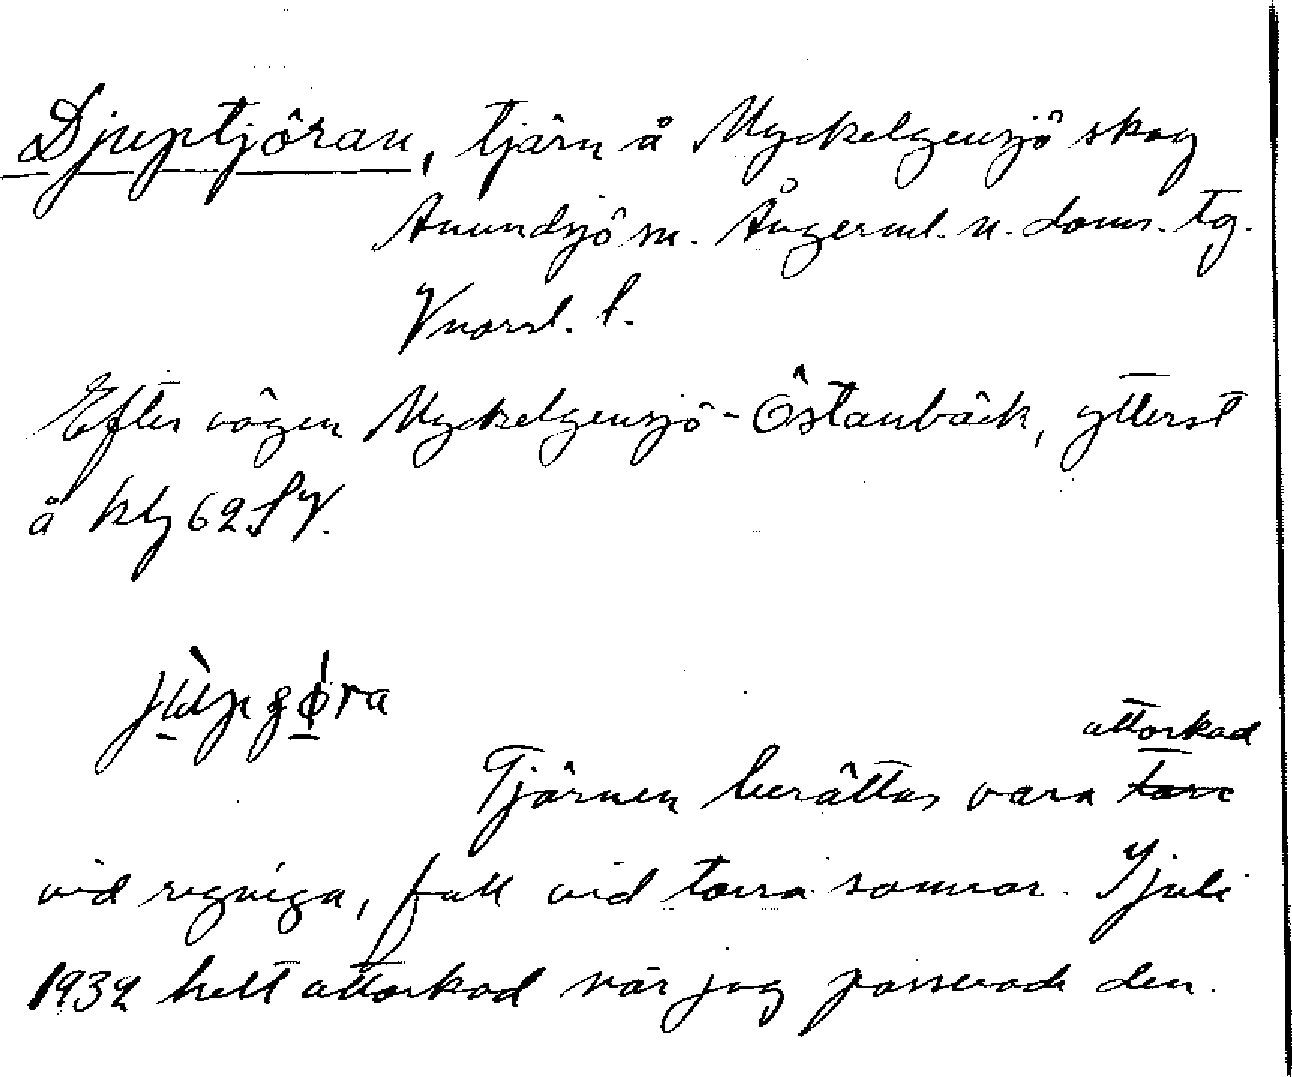 Djuptjöran, tjärn å Myckelgensjö skog
Anundsjö sn. Ångerml. n. doms. tg.
Vnorrl. l.
Efter vägen Myckelgensjö - Östanbäck, ytterst
å kbl 62 SV.
attorkad
Tjärnen berättas vara torr
vid regniga, full vid torra somrar. I juli
1932 helt attorkad när jag passerade den.